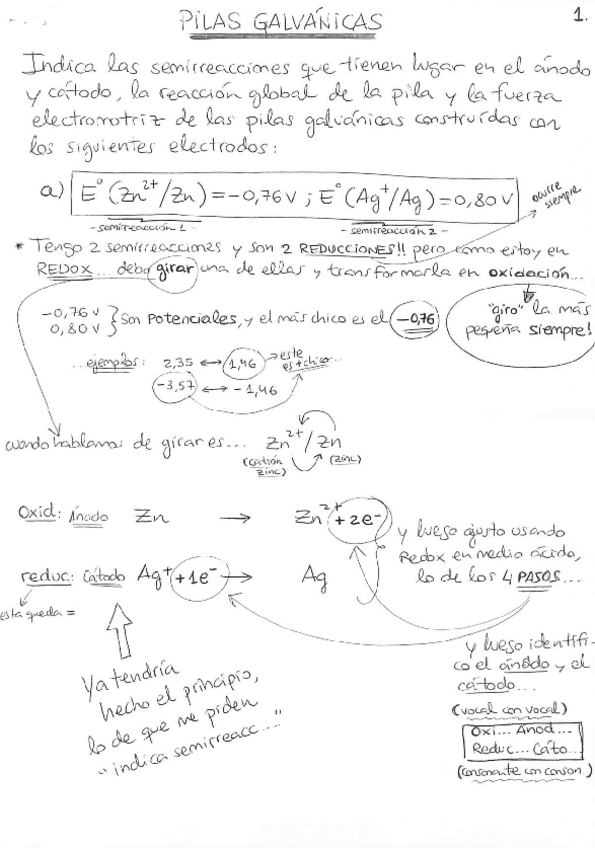 PILAS GALVÁNICAS
1.
Indica las semirreacciones que tienen lugar en el ánodo
y cátodo, la reacción global de la pila y la fuerza
electromotriz de las pilas galvánicas construídas con
los siguientes electrodos:
a) E°(Zn²⁺/Zn) = -0,76 V ; E°(Ag⁺/Ag) = 0,80 V
ocurre siempre
- semirreacción 1 - - semirreacción 2 -
* Tengo 2 semirreacciones y son 2 REDUCCIONES!! pero como estoy en
REDOX... debo girar una de ellas y transformarla en oxidación...
-0,76 V
0,80 V } son potenciales, y el más chico es el -0,76
"giro" la más
pequeña siempre!
...ejemplos: 2,35 ↔ 1,46 → este
es + chico...
-3,57 ↔ -1,46
cuando hablamos de girar es... Zn²⁺/Zn
(catión zinc) (zinc)
Oxid: Ánodo Zn → Zn²⁺ + 2e⁻
reduc: Cátodo Ag⁺ + 1e⁻ → Ag
esta queda =
y luego ajusto usando
Redox en medio ácido,
lo de los 4 PASOS...
Ya tendría
hecho el principio,
lo de que me piden
"indica semirreacc..."
y luego identifi-
co el ánodo y el
cátodo...
(vocal con vocal)
Oxi... Anod...
Reduc... Cáto...
(consonante con conson.)